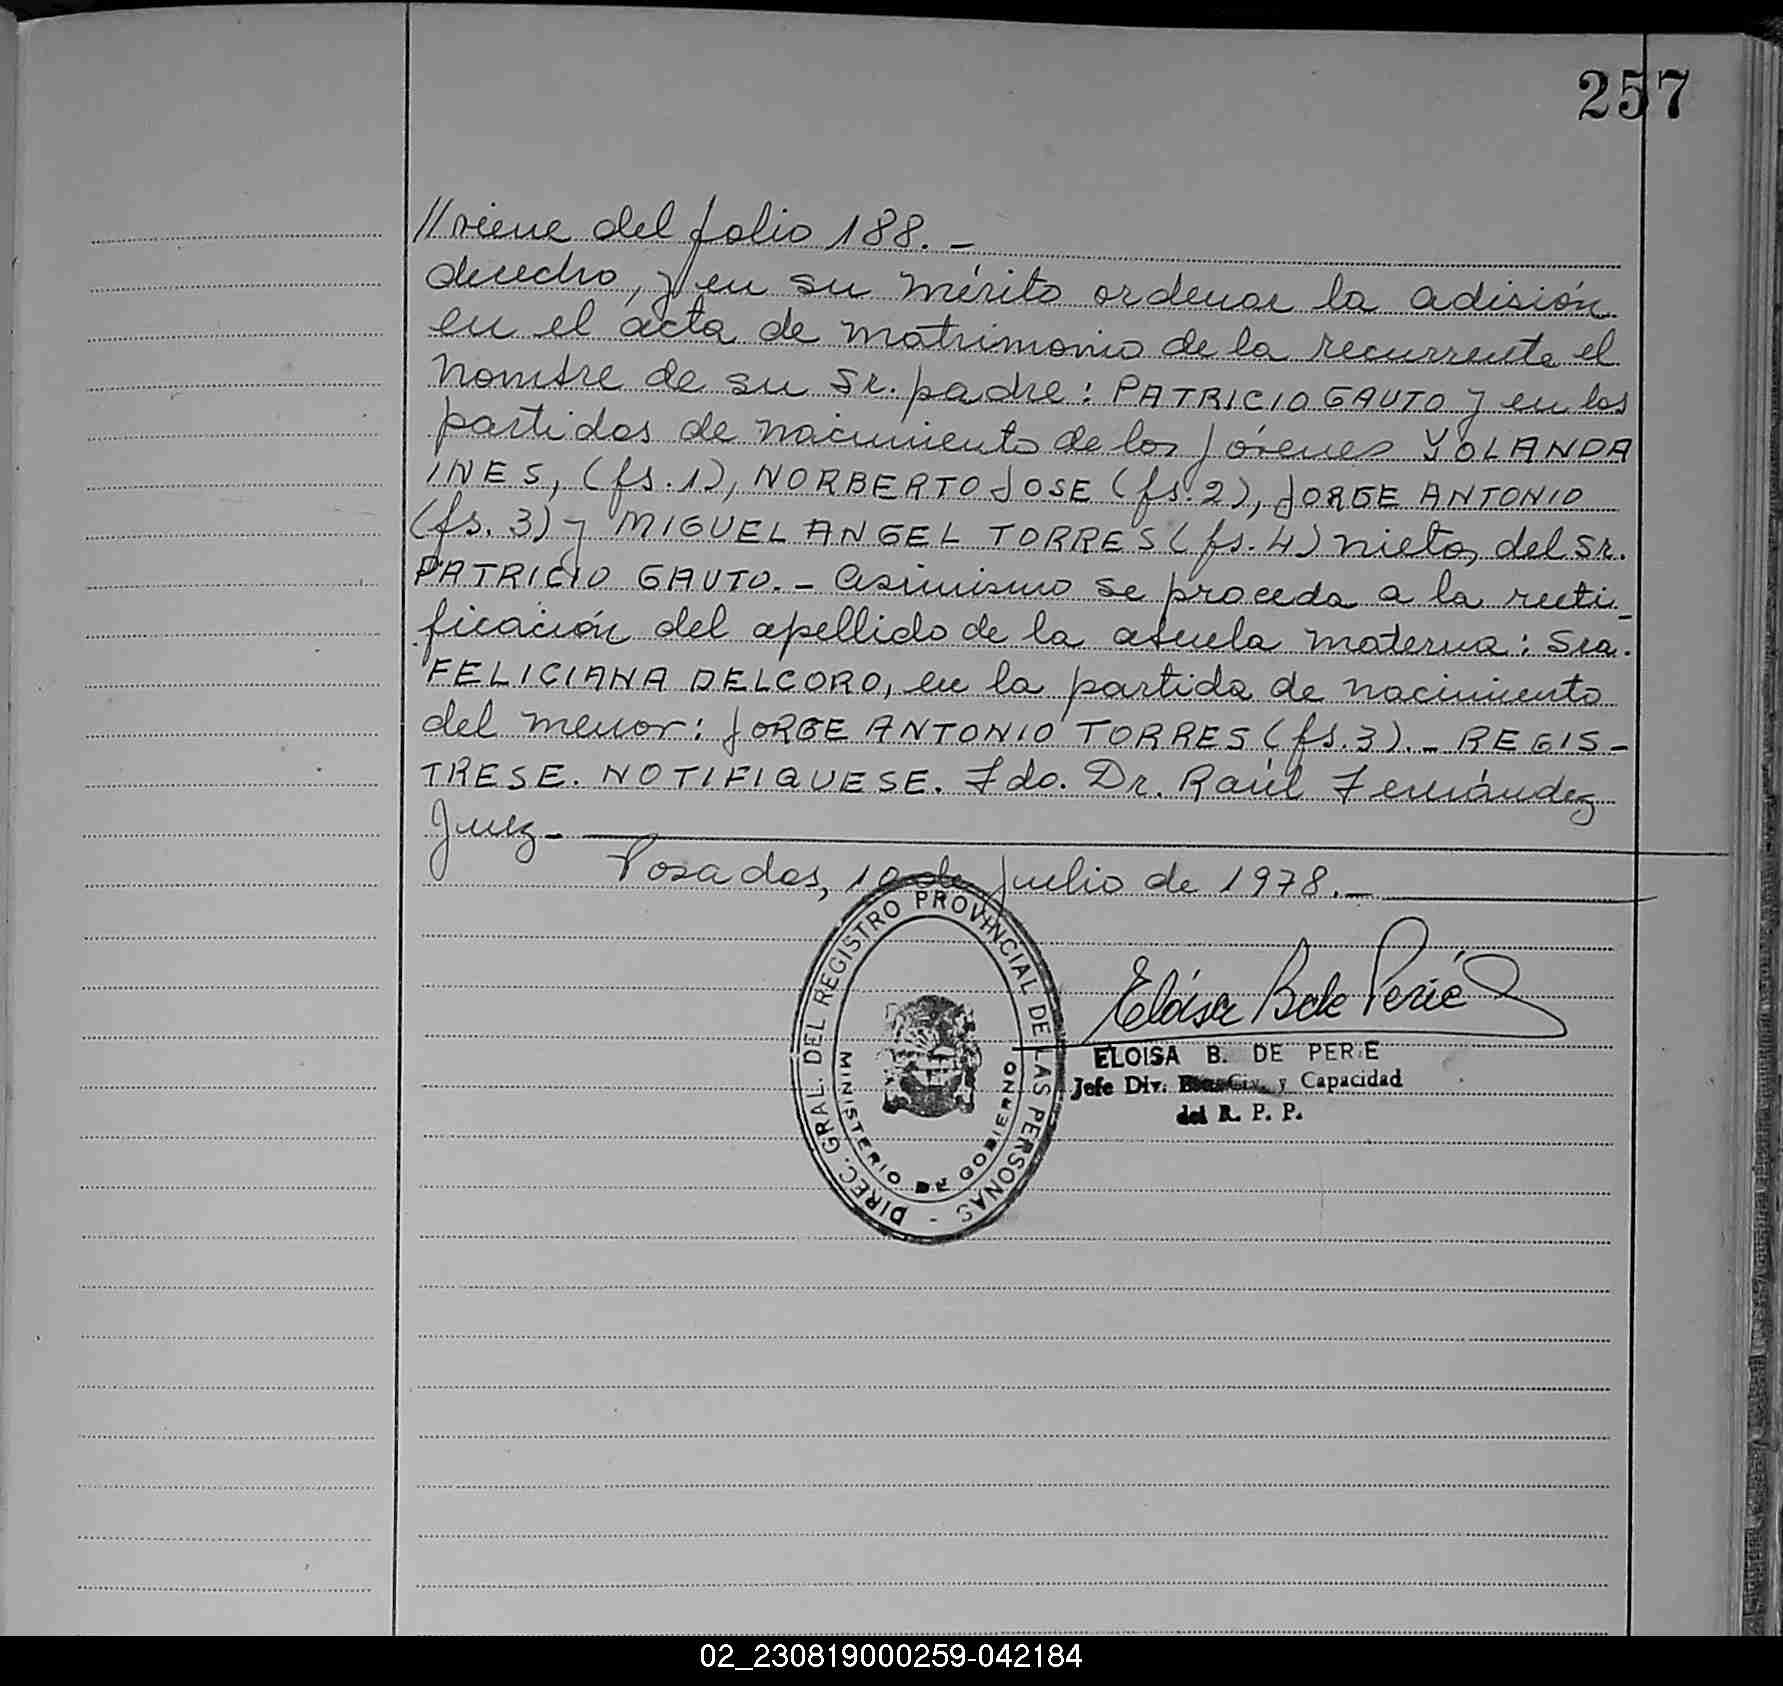 257
//viene del folio 188.-
derecho, y en su mérito ordenar la adisión
en el acta de matrimonio de la recurrente el
nombre de su Sr. padre: PATRICIO GAUTO y en las
partidas de nacimiento de los jóvenes YOLANDA
INES, (fs.1), NORBERTO JOSE (fs.2), JORGE ANTONIO
(fs. 3) y MIGUEL ANGEL TORRES (fs. 4) nietos del Sr.
PATRICIO GAUTO.- Asimismo se proceda a la recti-
ficación del apellido de la abuela materna: Sra.
FELICIANA DELCORO, en la partida de nacimiento
del menor: JORGE ANTONIO TORRES (fs.3).- REGIS-
TRESE. NOTIFIQUESE. Fdo. Dr. Raúl Fernández
Juez-
Posadas, 10 de Julio de 1978.-
DIREC. GRAL. DEL REGISTRO PROVINCIAL DE LAS PERSONAS -
MINISTERIO DE GOBIERNO
Eloisa B de Perié
ELOISA B. DE PERIE
Jefe Div. y Capacidad
del R. P. P.
02_230819000259-042184